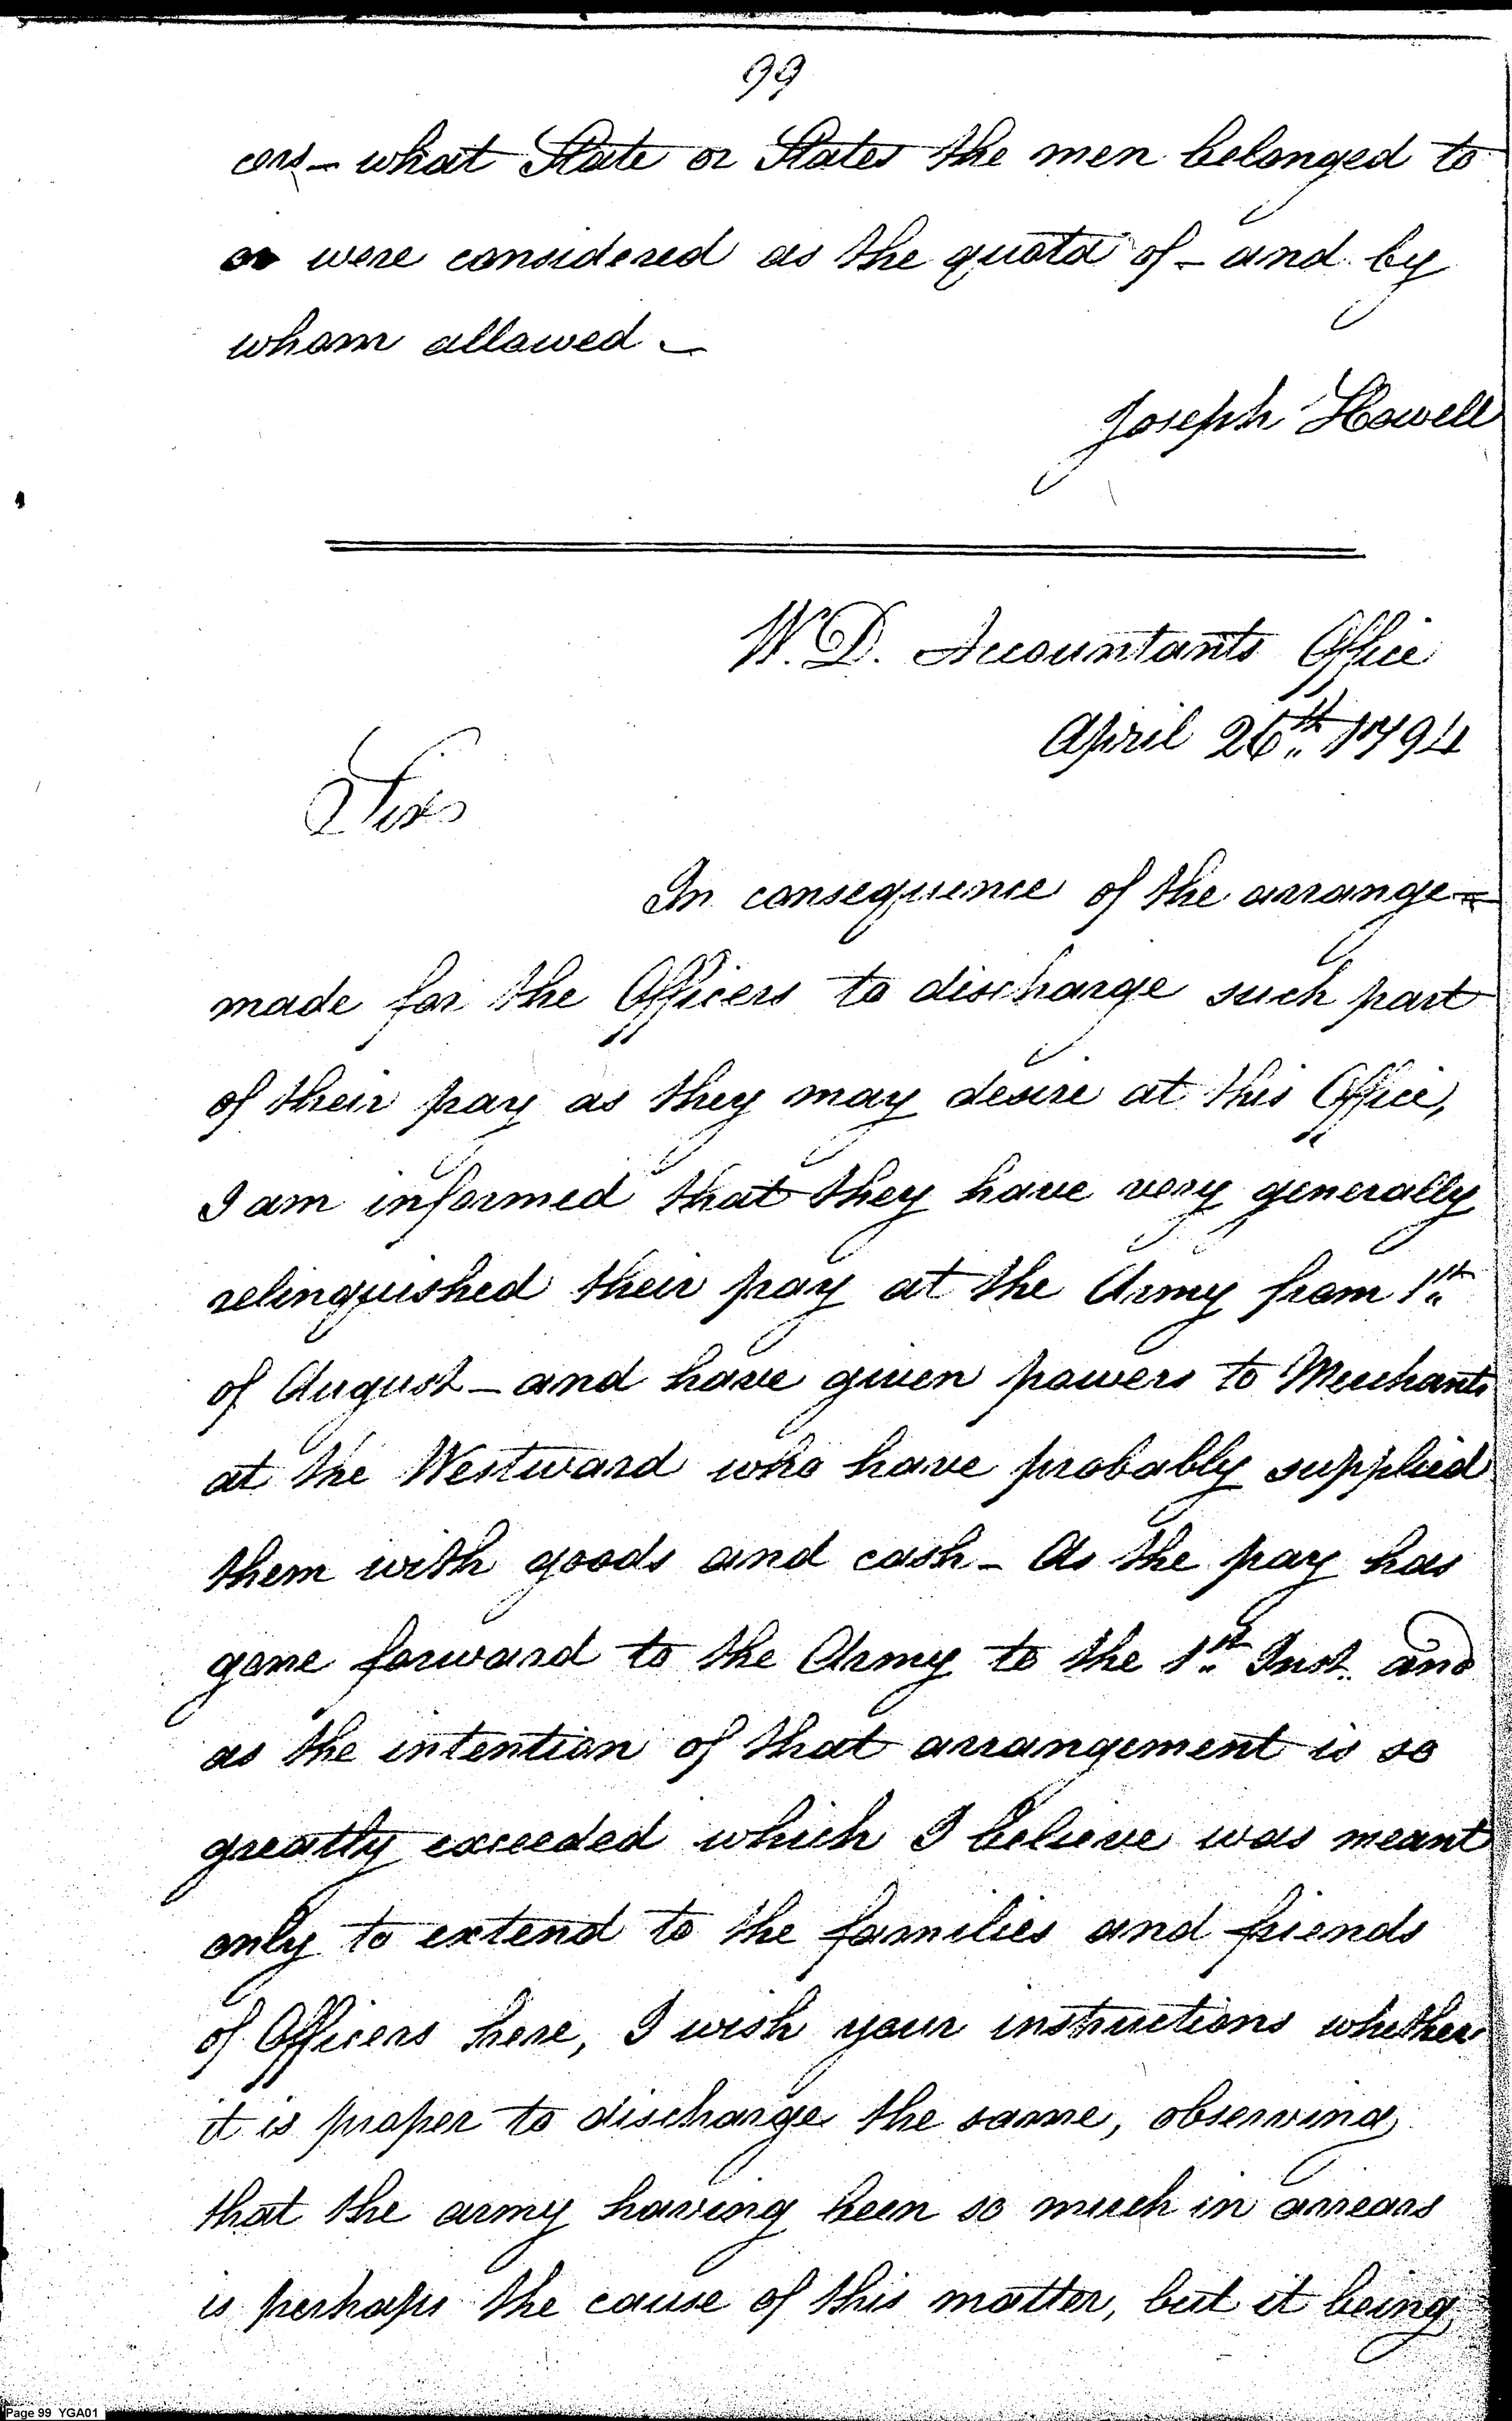 99
cers – what State or States the men belonged to
or were considered as the quota of – and by
whom allowed –
Joseph Howell
W. D. Accountants Office
April 26th 1794
Sir
In consequence of the arrange=
made for the Officers to discharge such part
of their pay as they may desire at this Office,
I am informed that they have very generally
relinquished their pay at the Army from 1th
of August – and have given powers to Merchants
at the Westward who have probably supplied
them with goods and cash – As the pay has
gone forward to the Army to the 1st Inst. and
as the intention of that arrangement is so
greatly exceeded which I believe was meant
only to extend to the families and friends
of Officers here, I wish your instructions whether
it is proper to discharge the same, observing
that the army having been so much in arrears
is perhaps the cause of this matter, but it being
Page 99 YGA01